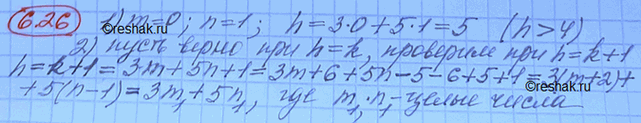 6.26 1) m=0; n=1; h=3·0+5·1=5 (h>4)
2) пусть верно при h=k, проверим при h=k+1
h=k+1=3m+5n+1=3m+6+5n-5-6+5+1=3(m+2)+
+5(n-1)=3m₁+5n₁, где m₁, n₁-целые числа
©reshak.ru